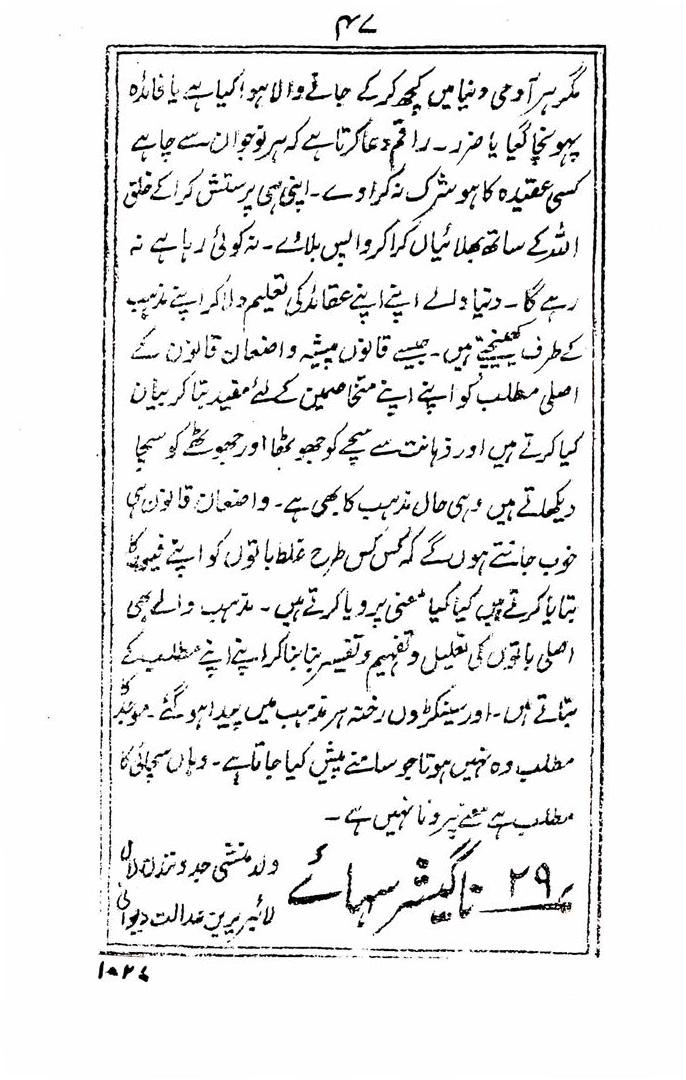 ۴۷
مگر ہر آدمی دنیا میں کچھ کر کے جانے والا ہوا کیا ہے یا فائدہ
پہونچا گیا یا ضرر۔ راقم دعا کرتا ہے کہ ہر نوجوان سے چاہے
کسی عقیدہ کا ہو شرک نہ کراوے۔ اپنی ہی پرستش کرا کے خلق
اللہ کے ساتھ بھلائیاں کرا کر واپس بلاوے۔ نہ کوئی رہا ہے نہ
رہے گا۔ دنیا والے اپنے اپنے عقائد کی تعلیم دلا کر اپنے مذہب
کے طرف کھینچتے ہیں۔ جیسے قانون پیشہ واضعان قانون کے
اصلی مطلب کو اپنے اپنے متخاصمین کے لئے مفید بتا کر بیان
کیا کرتے ہیں اور ذہانت سے سچے کو جھوٹھا اور جھوٹھے کو سچا
دیکھلاتے ہیں وہی حال مذہب کا بھی ہے۔ واضعان قانون ہی
خوب جانتے ہوں گے کہ کس کس طرح غلط باتوں کو اپنے
بتایا کرتے ہیں کیا کیا معنی پرویا کرتے ہیں۔ مذہب والے بھی
اصلی باتوں کی تعلیل و تفہیم و تفسیر بنا بنا کر اپنے اپنے مطلب کے
بتاتے ہیں۔ اور سینکڑوں رخنہ ہر مذہب میں پیدا ہو گئے۔ موجد کا
مطلب وہ نہیں ہوتا جو سامنے پیش کیا جاتا ہے۔ وہاں سچائی کا
مطلب ہے معنے پرونا نہیں ہے۔
۲۹ ناگیشر سہائے ولد منشی لال
لائبریرین عدالت دیوانی